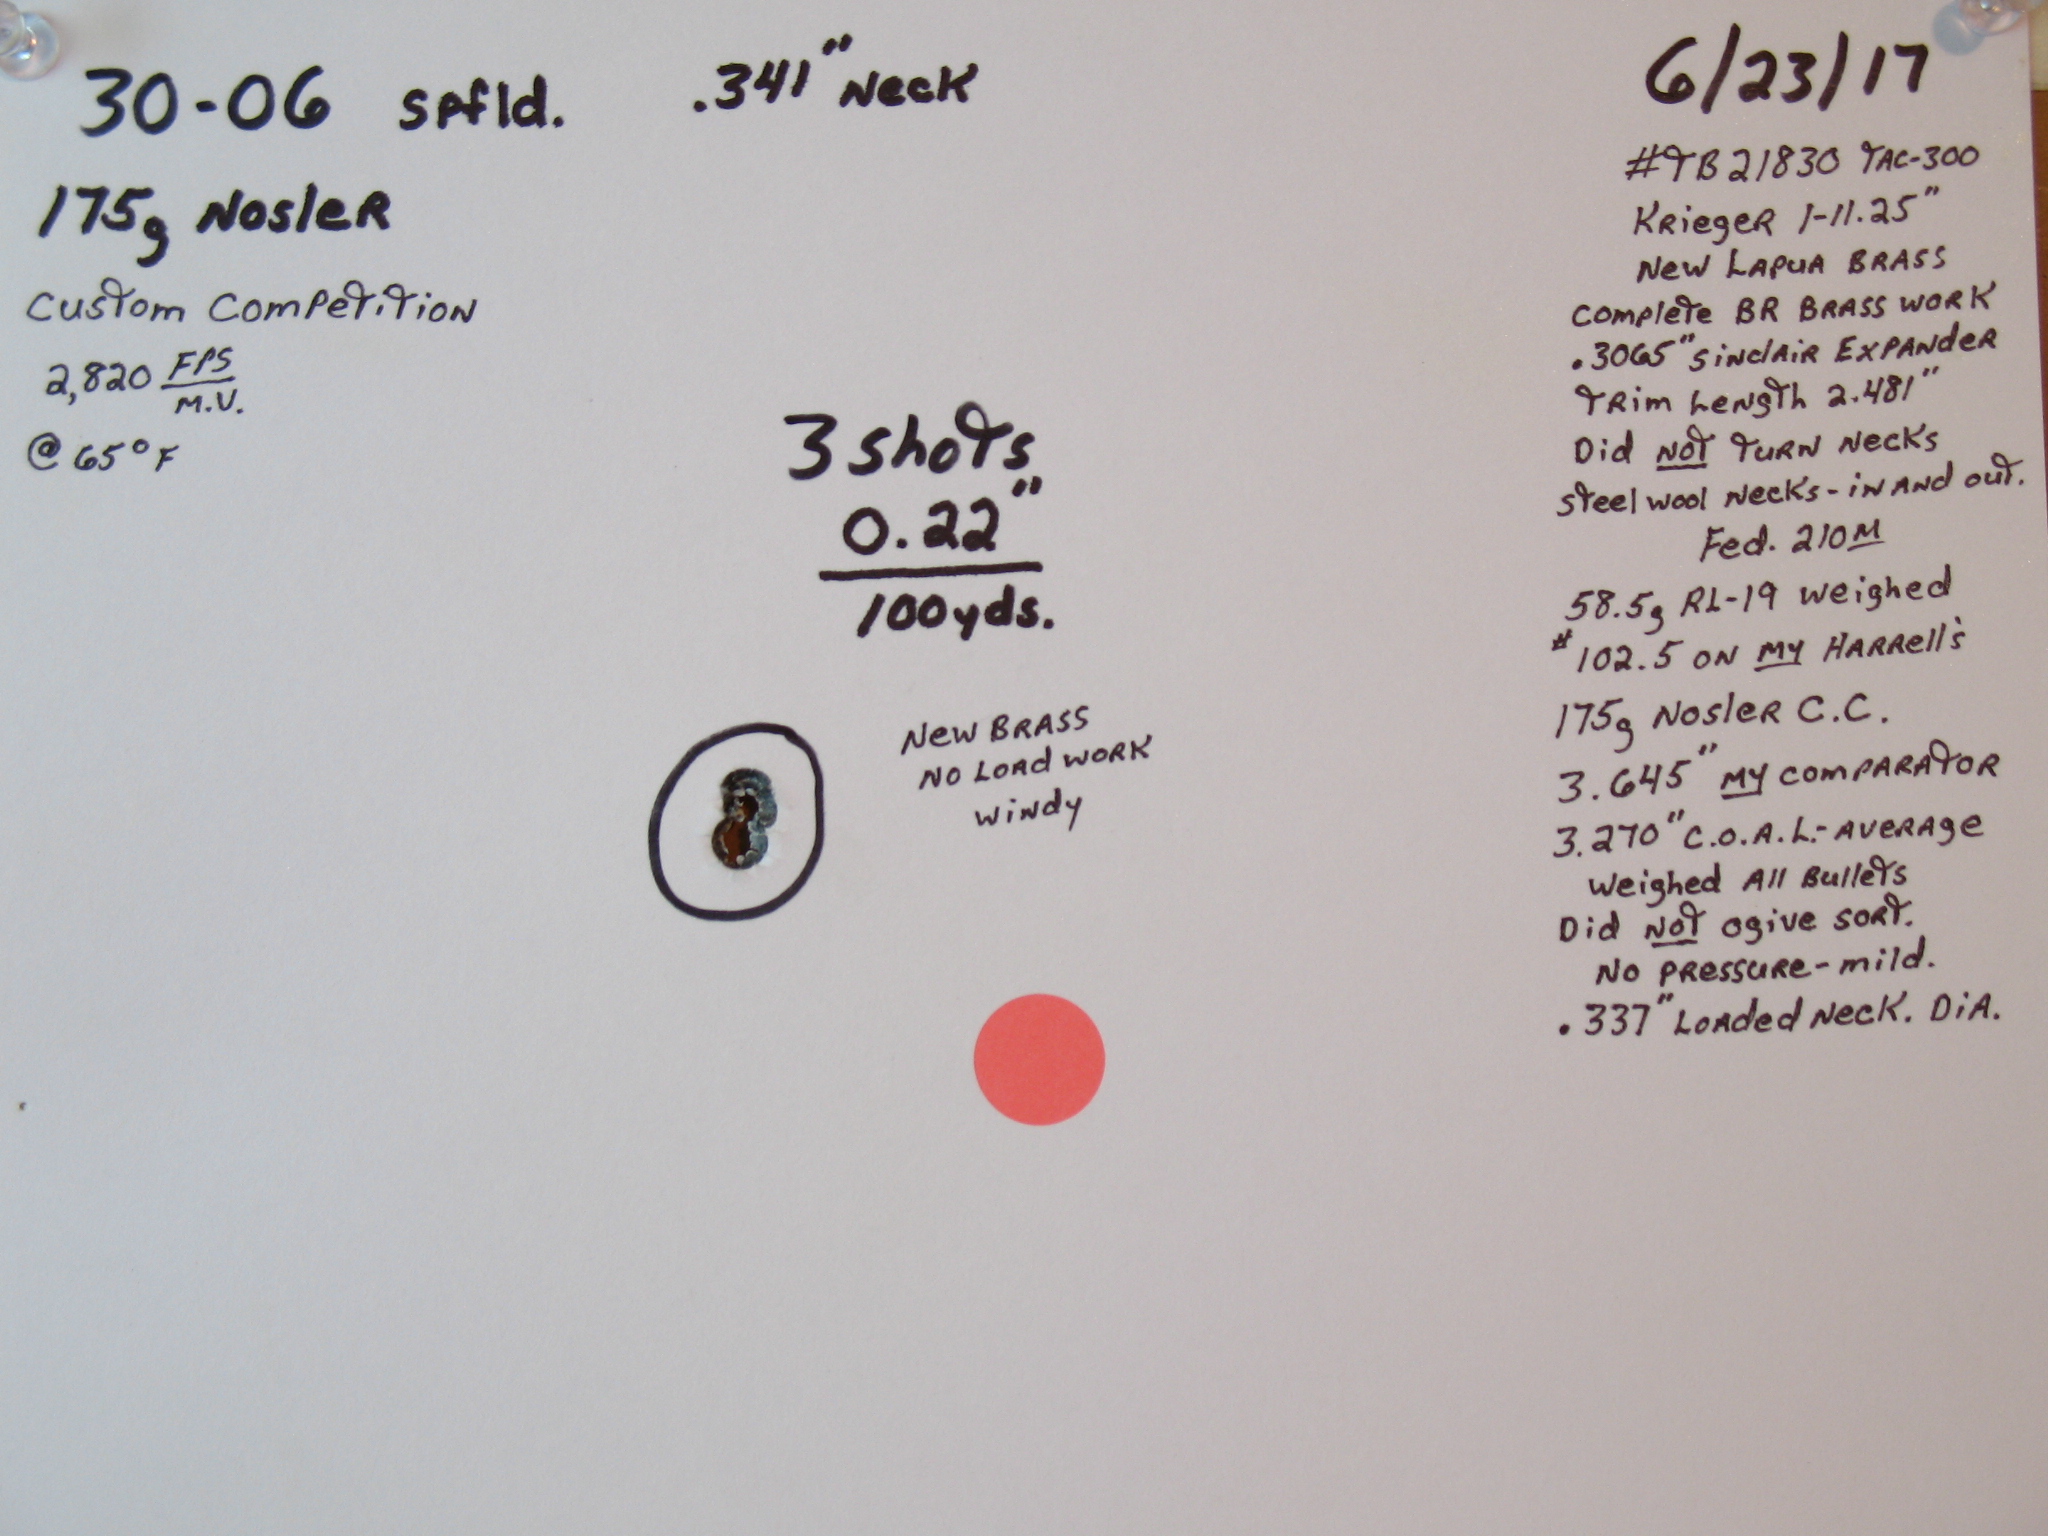 30-06 Spfld. .341" Neck
175g Nosler
Custom Competition
2,820 FPS
M.V.
@ 65°F
3 shots
0.22"
100yds.
New Brass
No Load work
windy
6/23/17
#TB21830 TAC-300
Krieger 1-11.25"
New Lapua Brass
Complete BR Brass work
.3065" Sinclair Expander
Trim Length 2.481"
Did NOT Turn Necks
Steel wool Necks - in and out.
Fed. 210M
58.5g RL-19 weighed
#102.5 on MY Harrell's
175g Nosler C.C.
3.645" MY comparator
3.270" C.O.A.L.- Average
Weighed All Bullets
Did NOT ogive sort.
No pressure - mild.
.337" Loaded Neck. DiA.